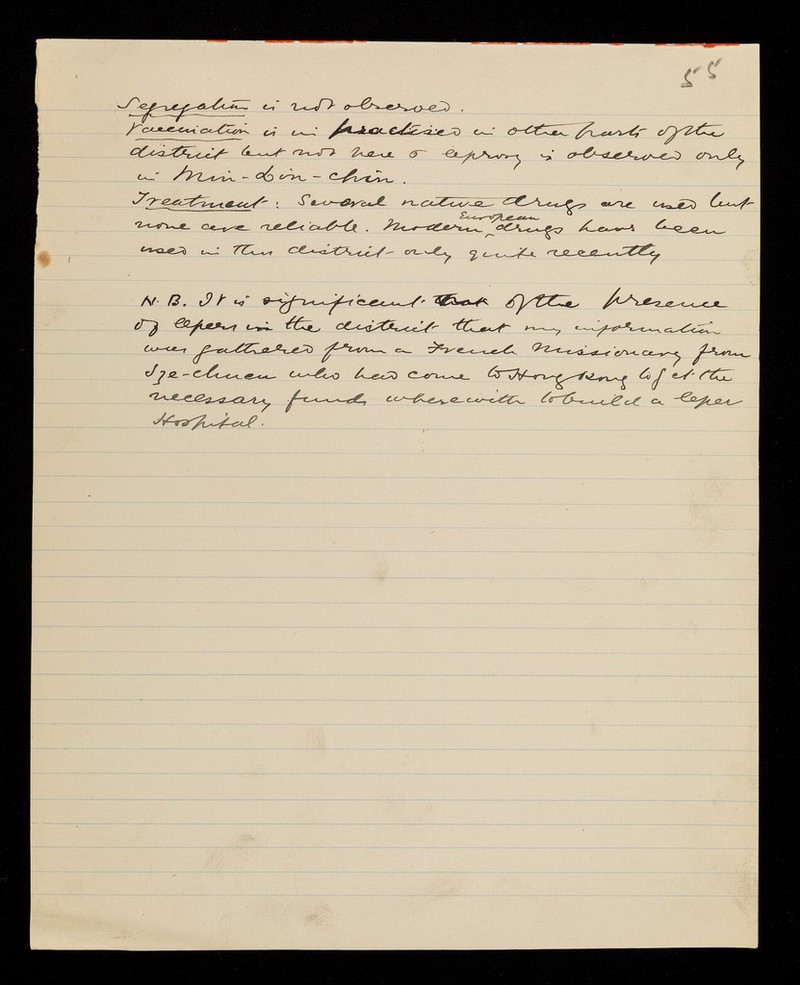 55
Segregation is not observed.
Vaccination is in practised in other parts of the
district but not here & leprosy is observed only
in Min-don-chin.
Treatment: Several native drugs are used but
European
none are reliable. Modern ^ drugs have been
used in this district only quite recently
N.B. It is significant that of the presence
of lepers in the district that my information
was gathered from a French Missionary from
Sze-chuen who had come to Hong Kong to get the
necessary funds wherewith to build a leper
Hospital.